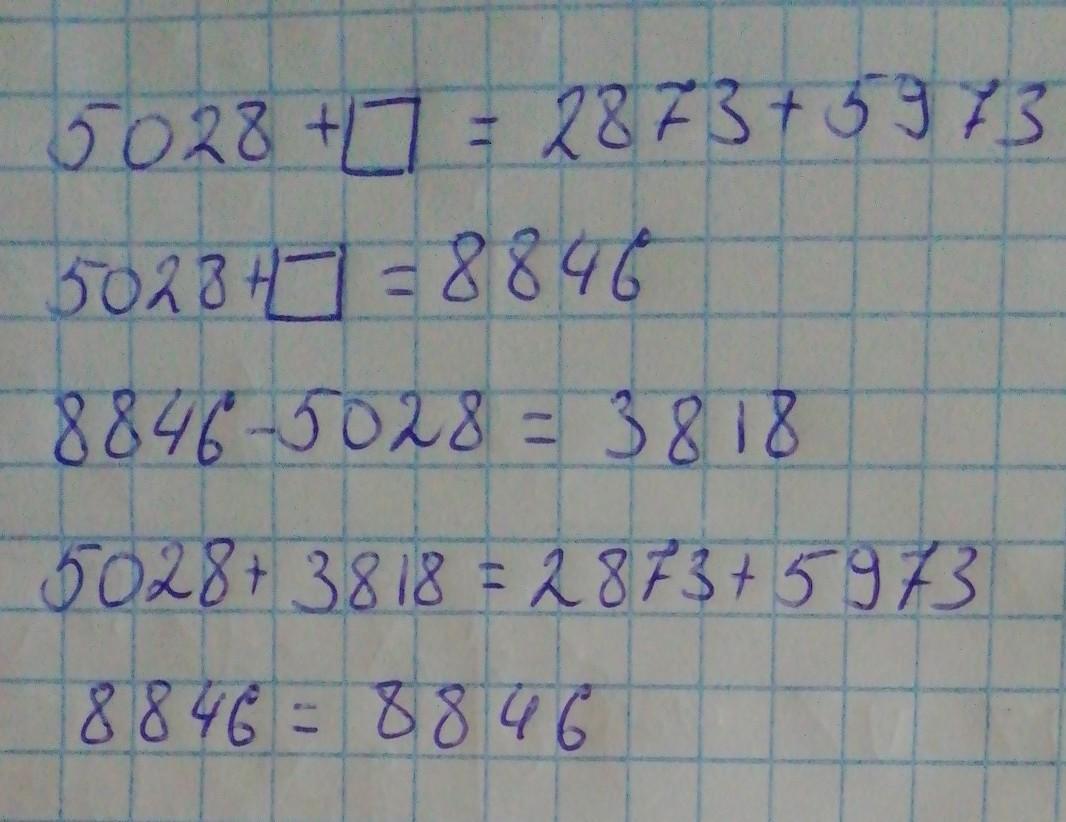 5028 + □ = 2873 + 5973
5028 + □ = 8846
8846 - 5028 = 3818
5028 + 3818 = 2873 + 5973
8846 = 8846